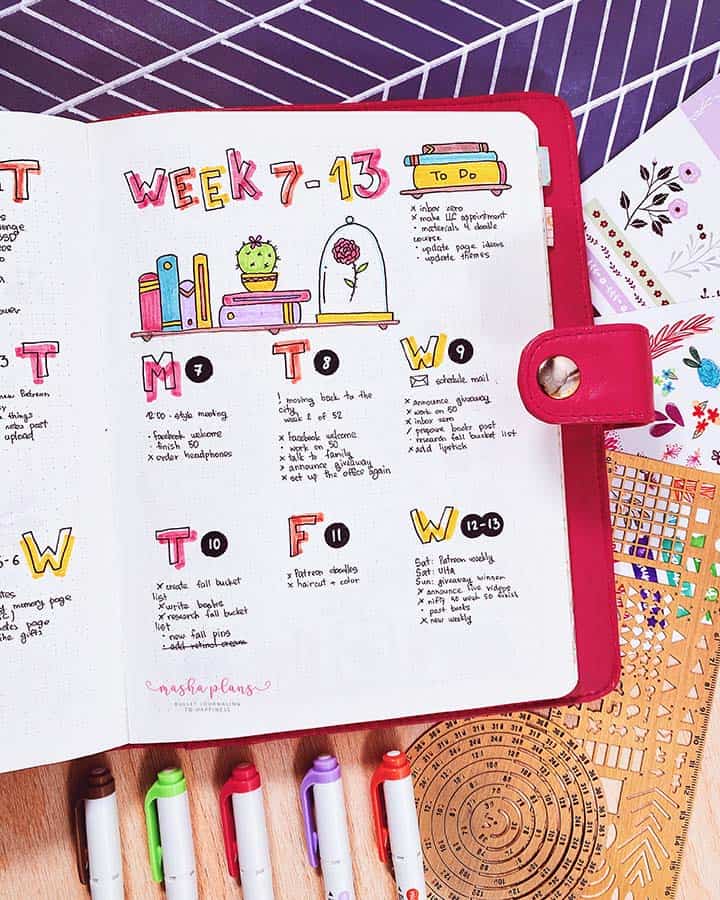 T
T
new Patreon
things
notes post
upload
5-6 W
memory page
page
the gifts
WEEK 7-13
To Do
x inbox zero
x make LLC appointment
• materials 4 doodle
course
• update page ideas
• update themes
M 7
12:00 - style meeting
• facebook welcome
• finish 50
x order headphones
T 8
! moving back to the
city
week 2 of 52
x facebook welcome
• work on 50
x talk to family
x announce giveaway
x set up the office again
W 9
schedule mail
x announce giveaway
x work on 50
x inbox zero
/ prepare books post
• research fall bucket list
x add lipstick
T 10
x create fall bucket
list
x write
x research fall bucket
list
• new fall pins
• add retinol cream
F 11
x Patreon doodles
x haircut + color
W 12-13
Sat: Patreon weekly
Sat: Ulta
Sun: giveaway winner
x announce live videos
• nifty 50 week 50 finish
• post books
x new weekly
masha plans
BULLET JOURNALING
TO HAPPINESS